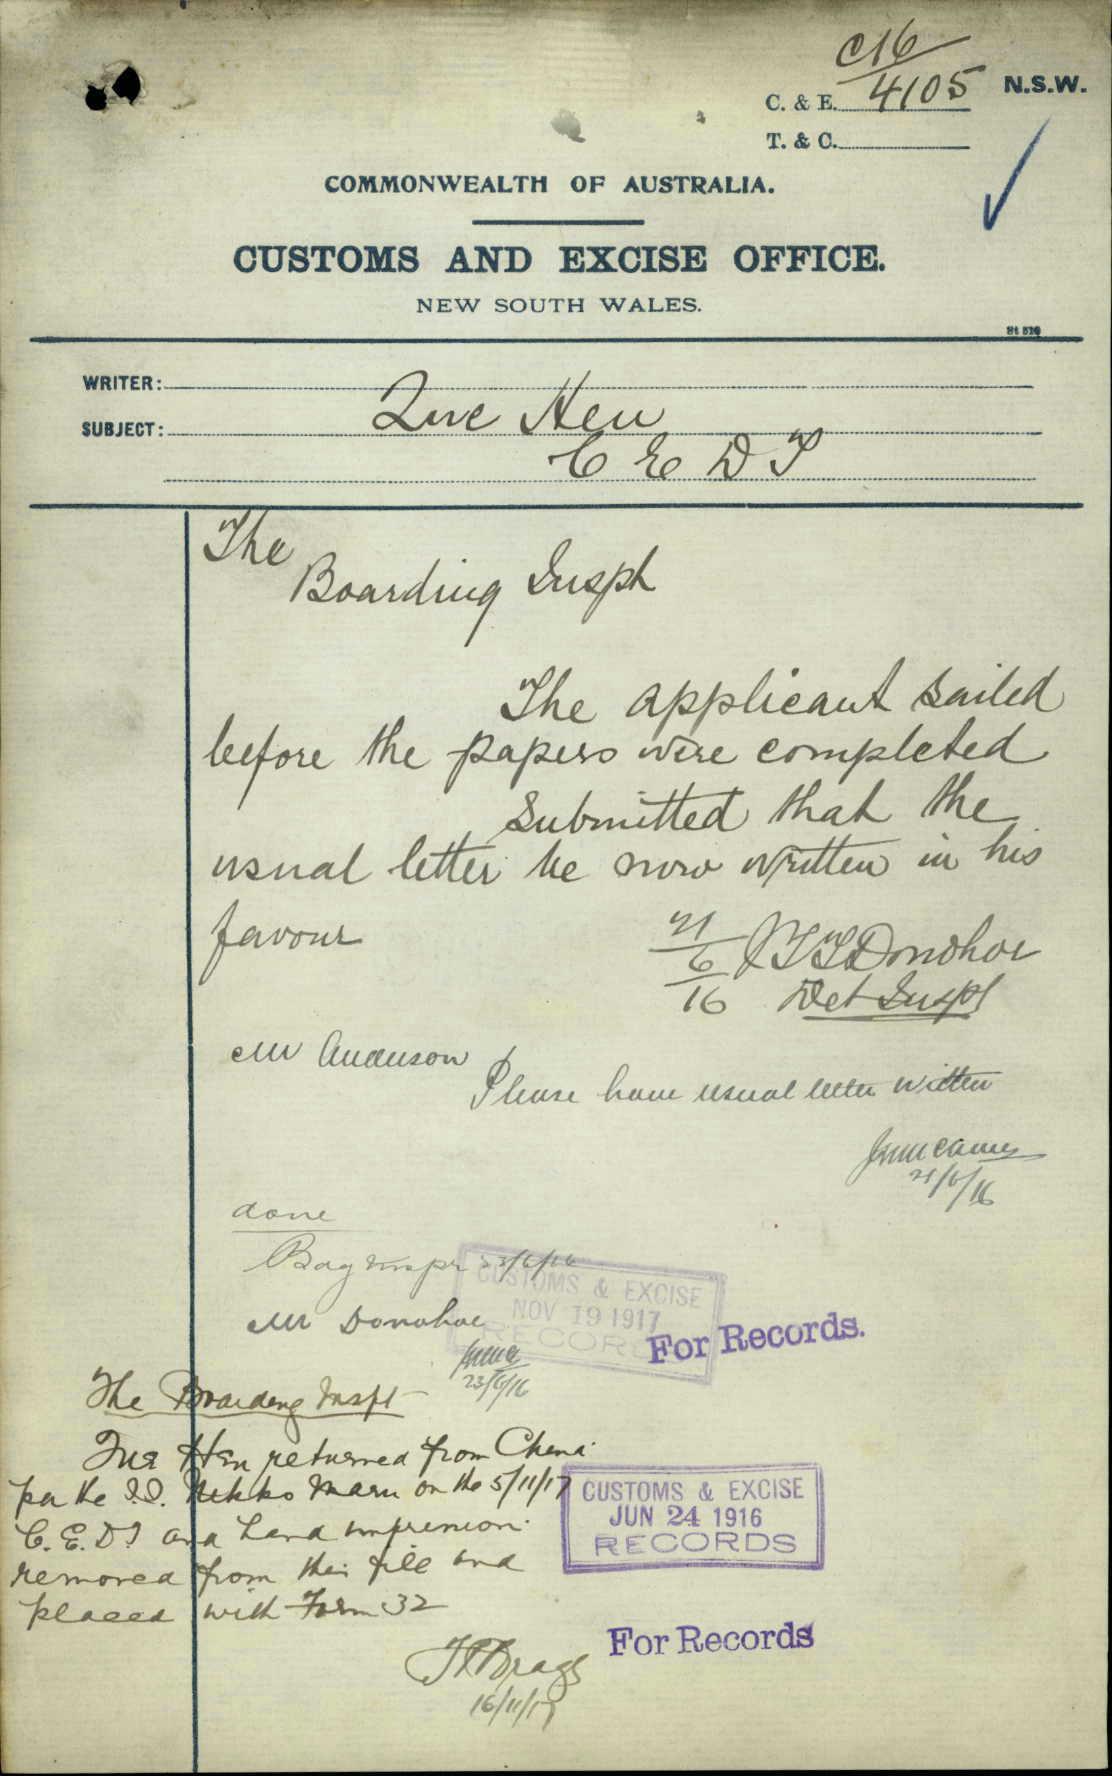 C16
C. & E. 4105 N.S.W.
T. & C.
COMMONWEALTH OF AUSTRALIA.
CUSTOMS AND EXCISE OFFICE.
NEW SOUTH WALES.
WRITER:
SUBJECT: Hen
C E D T
The
Boarding Inspt
The applicant sailed
before the papers were completed
Submitted that the
usual letter be now written in his
favour
21/6/16 J T T Donohoe
Det Inspt
Mr Anderson
Please have usual letter written
21/6/16
done
23/6/16
CUSTOMS & EXCISE
NOV 19 1917
RECORDS
Mr Donohoe
For Records.
23/6/16
The Boarding Inspt
Hen returned from China
per the S.S. Nikko Maru on the 5/11/17
C.E.D.T and hand impression
removed from this file and
placed with Form 32
CUSTOMS & EXCISE
JUN 24 1916
RECORDS
For Records
16/11/17